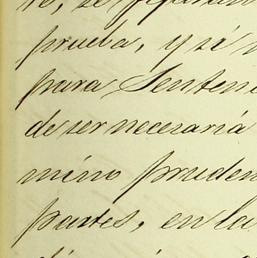 prueba, y si
para Senten
de ser necesaria
mino pruden
partes, en la